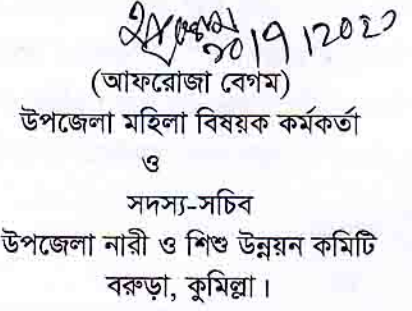 ২০/৭/২০২০
(আফরোজা বেগম)
উপজেলা মহিলা বিষয়ক কর্মকর্তা
ও
সদস্য-সচিব
উপজেলা নারী ও শিশু উন্নয়ন কমিটি
বরুড়া, কুমিল্লা।